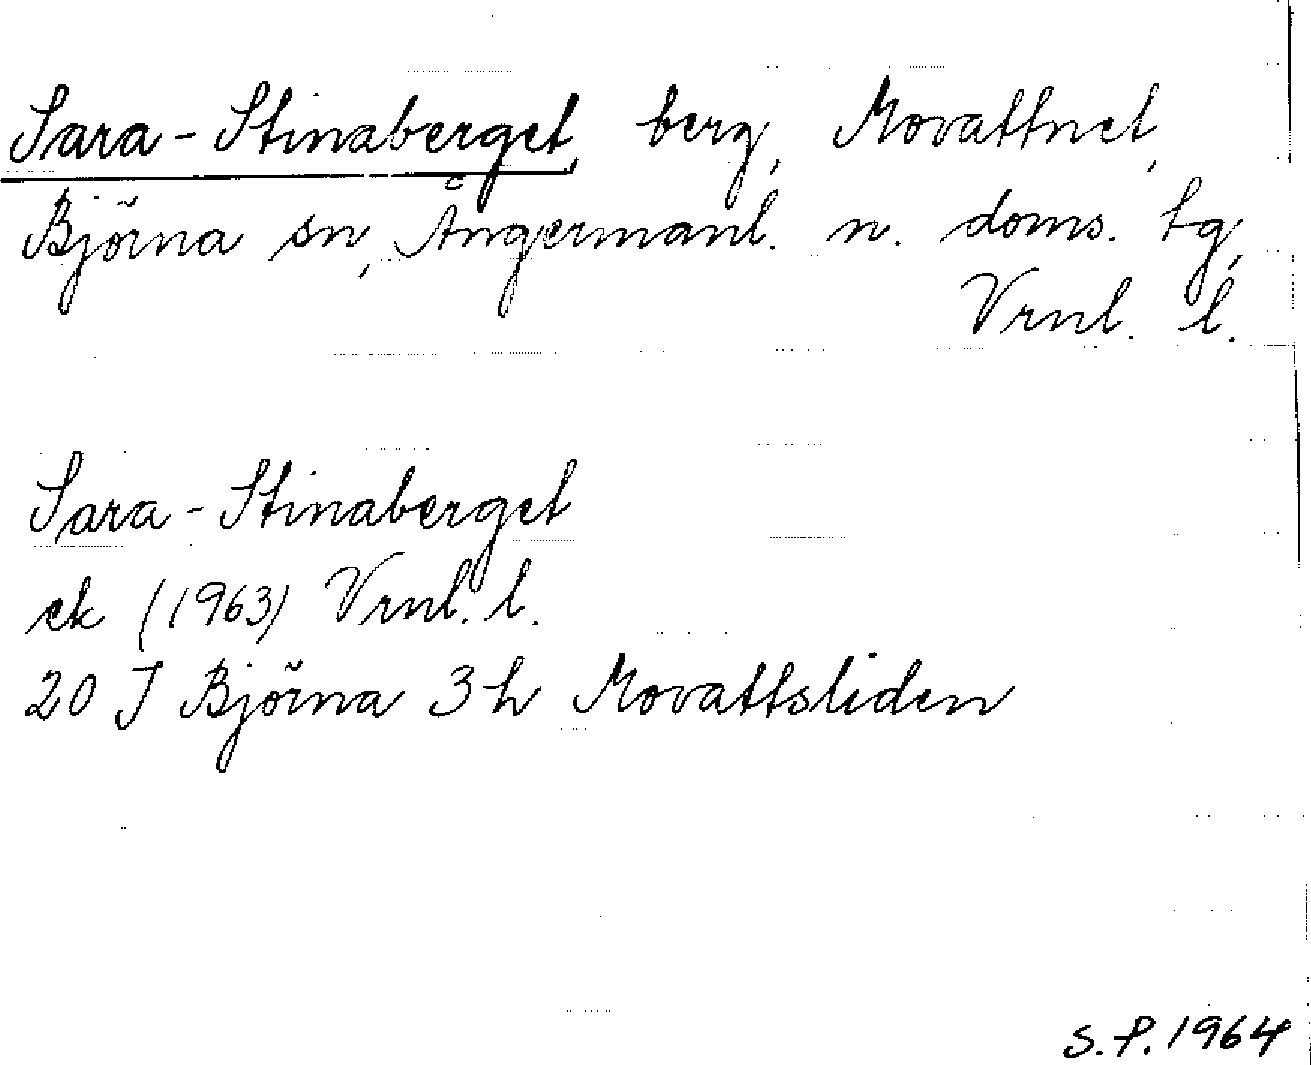 Sara-Stinaberget, berg, Movattnet,
Björna sn, Ångermanl. n. doms. tg,
Vrnl. l.
Sara-Stinaberget
ek (1963) Vrnl. l.
20 J Björna 3h Movattsliden
S.P. 1964